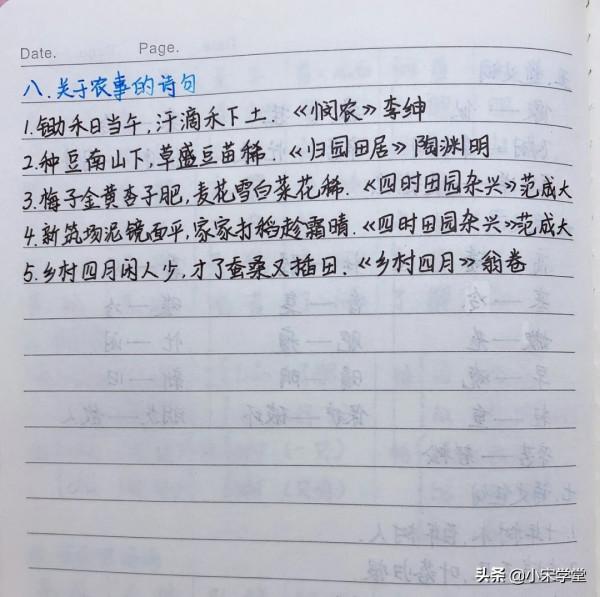 Date. Page.
八.关于农事的诗句
1.锄禾日当午,汗滴禾下土.《悯农》李绅
2.种豆南山下,草盛豆苗稀.《归园田居》陶渊明
3.梅子金黄杏子肥,麦花雪白菜花稀.《四时田园杂兴》范成大
4.新筑场泥镜面平,家家打稻趁霜晴.《四时田园杂兴》范成大
5.乡村四月闲人少,才了蚕桑又插田.《乡村四月》翁卷
头条 @小宋学堂